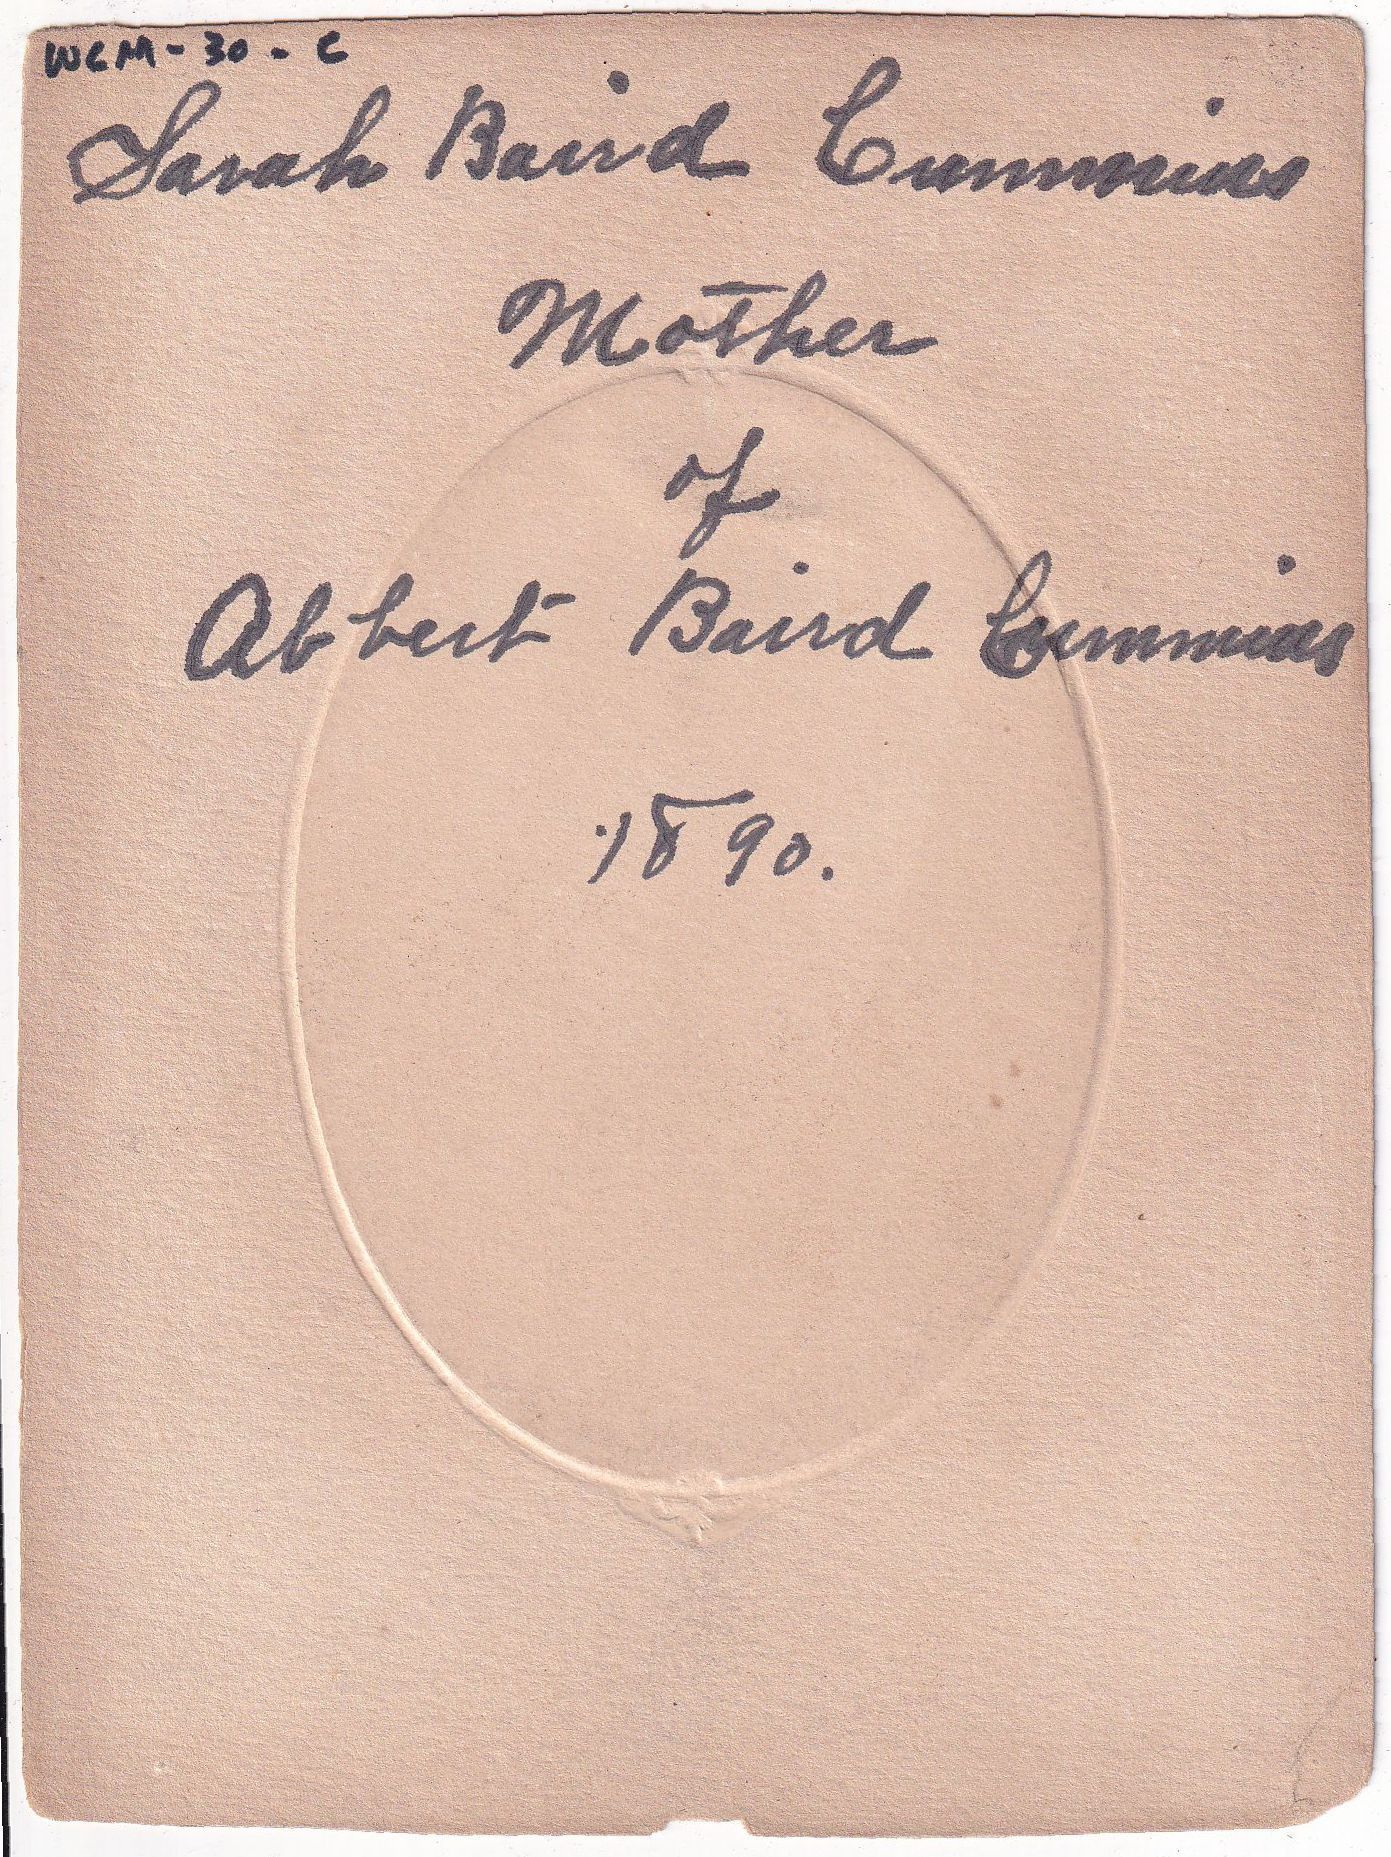 WCM-30-C
Sarah Baird Cummins
Mother
of
Albert Baird Cummins
1890.